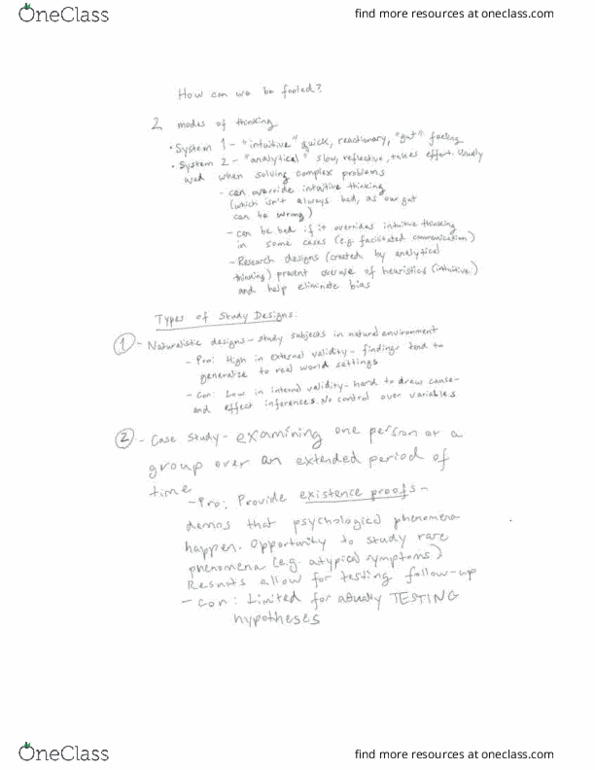 OneClass
find more resources at oneclass.com
How can we be fooled?
2 modes of thinking
• System 1 - "intuitive" quick, reactionary, "gut" feeling
• System 2 - "analytical" slow, reflective, takes effort. Usually
used when solving complex problems
- can override intuitive thinking
(which isn't always bad, as our gut
can be wrong)
- can be bad if it overrides intuitive thinking
in some cases (e.g. facilitated communication)
- Research designs (created by analytical
thinking) prevent overuse of heuristics (intuitive)
and help eliminate bias
Types of Study Designs:
① - Naturalistic designs - study subjects in natural environment
- Pro: High in external validity - findings tend to
generalize to real world settings
- Con: Low in internal validity - hard to draw cause-
and effect inferences. No control over variables
② - Case study - examining one person or a
group over an extended period of
time
- Pro: Provide existence proofs -
demos that psychological phenomena
happen. Opportunity to study rare
phenomena (e.g. atypical symptoms)
Results allow for testing follow-up
- Con: Limited for actually TESTING
hypotheses
OneClass
find more resources at oneclass.com